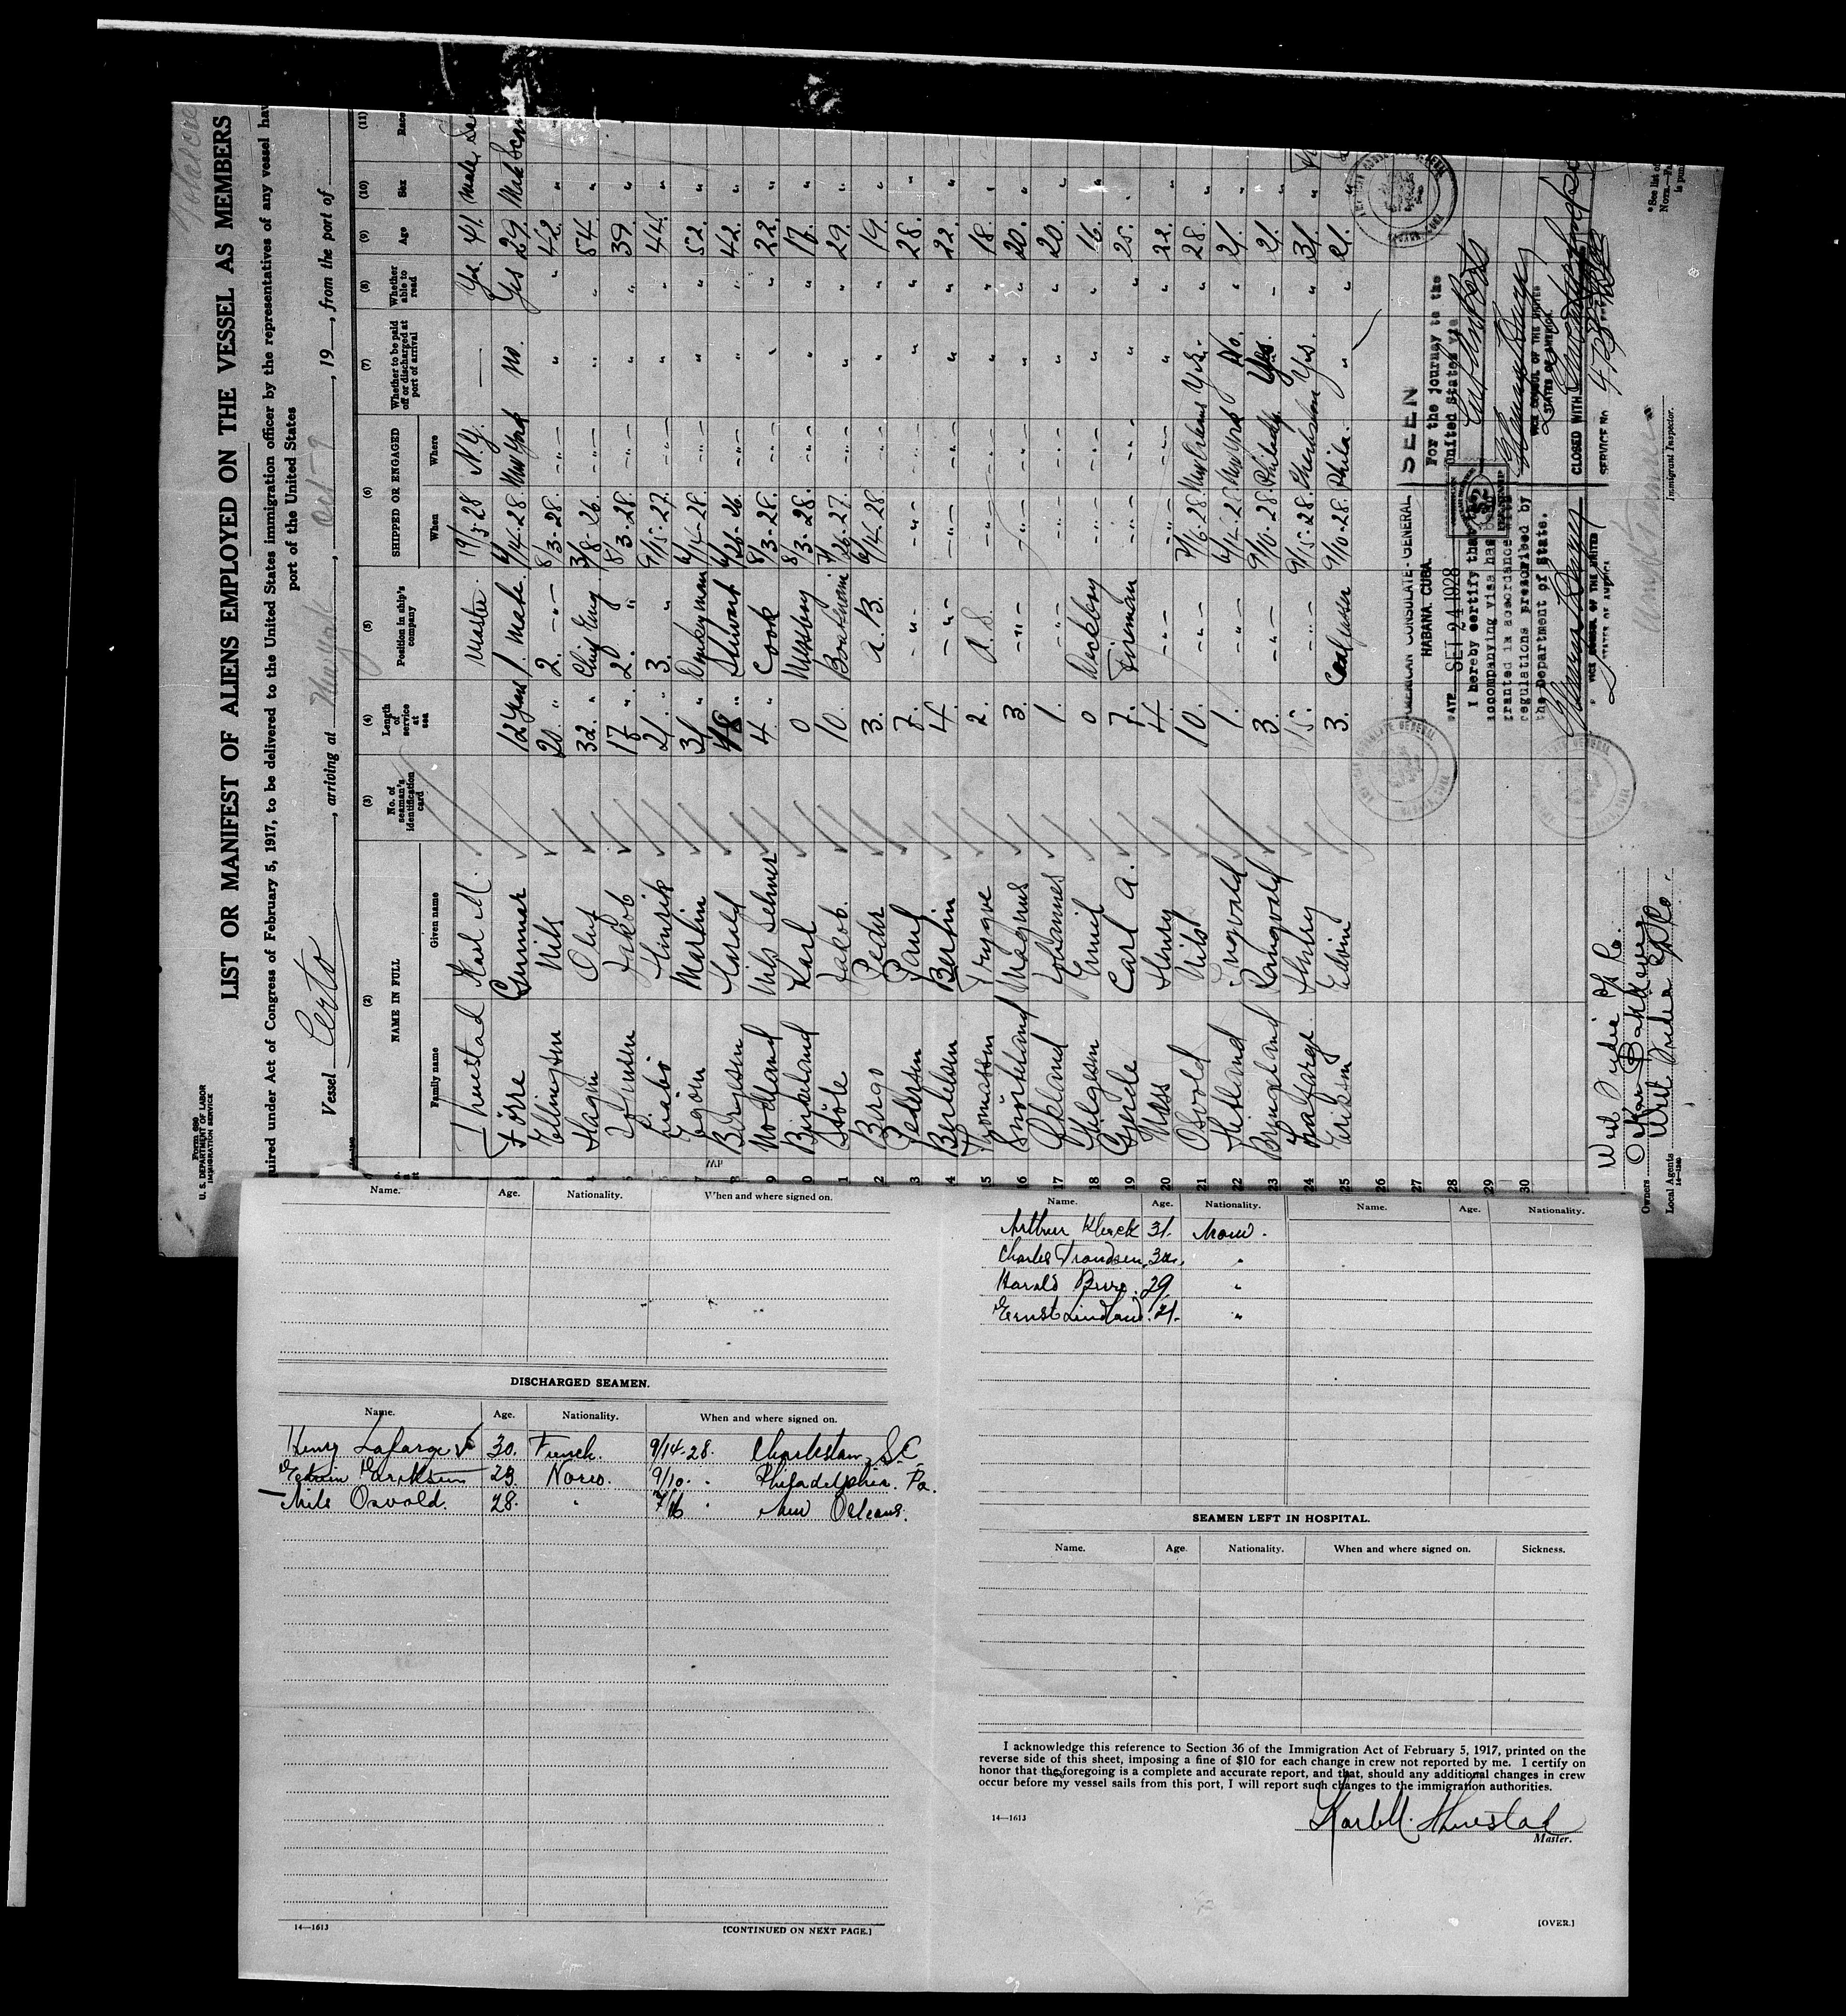 Form 689
U. S. DEPARTMENT OF LABOR
IMMIGRATION SERVICE
LIST OR MANIFEST OF ALIENS EMPLOYED ON THE VESSEL AS MEMBERS
quired under Act of Congress of February 5, 1917, to be delivered to the United States immigration officer by the representatives of any vessel hav
port of the United States
Vessel Certo, arriving at New York, Oct 9, 19, from the port of
(2) (3) (4) (5) (6) (7) (8) (9) (10) (11)
NAME IN FULL
Family name Given name
No. of seaman's identification card
Length of service at sea
Position in ship's company
SHIPPED OR ENGAGED
When Where
Whether to be paid off or discharged at port of arrival
Whether able to read
Age
Sex
Race
Thuestad Karl M. Master 28 N.Y. — Yes 41. Male
Förre Gunnar 12 years 1. Mate. 6/14-28. New York no. Yes 29.
2 Ellingsen Nils 20 " 2. -"- 8/3-28. -"- " " 42. "
4 Hagen Oluf 32. " Chief Eng 3/8-26. -"- " " 54. "
5 Johnsen Jakob 17 " 2. " 8/3-28. -"- " " 39. "
6 Hinrik 21. " 3. " 9/15-27. -"- " " 44. "
7 Martin 31 " Donkeyman 6/14-28. -"- " " 52. "
8 Borgesen Harald 18 " Stewart 6/26-26. -"- " " 42. "
9 Nodland Nils Selmer 4 " Cook 8/3-28. -"- " " 22. "
0 Birkeland Karl 0 Messboy 8/3-28. -"- " " 17. "
1 Störe Jakob. 10. Boatswain 26-27. -"- " " 29. "
2 Bergo Peder 3. A. B. 6/14-28 -"- " " 19. "
3 Pedersen Paul 7. -"- -"- -"- " " 28. "
4 Bertelsen Bertin 4. -"- -"- -"- " " 22. "
15 Thomassen Trygve 2. O. S. -"- -"- " " 18. "
16 Snörteland Magnus 3. -"- -"- -"- " " 20. "
17 Ökland Johannes 1. -"- -"- -"- " " 20. "
18 Helgesen Emil 0 Deckboy -"- -"- " " 16. "
19 Gjerde Carl A. 7. Fireman -"- -"- " " 25. "
20 Næss Henry 4. -"- -"- -"- " " 22. "
21 Osvold Nils 10. -"- 7/16-28. New Orleans Yes. " 28. "
22 Hetland Ingvald 1. -"- 6/14-28 New York No. " 21. "
23 Bryngeland Rangvald 3. -"- 9/10-28. Philadp. Yes. " 21. "
24 Lafarge Henry 15. -"- 9/15-28. Charleston Yes. " 31. "
25 Eriksen Edvin 3. Coal passer 9/10-28. Phila. " " 21. "
26
27
28
29
30
AMERICAN CONSULATE-GENERAL
HABANA, CUBA.
DATE SET 24 1928
I hereby certify that the
accompanying visa has been
granted in accordance with
regulations prescribed by
the Department of State.
VICE CONSUL OF THE UNITED
STATES OF AMERICA
SEEN
For the journey to the
United States via
VICE CONSUL OF THE UNITED
STATES OF AMERICA.
CLOSED WITH
SERVICE No. 4723
Immigrant Inspector.
West India Oil Co.
Owners
Local Agents West India Oil Co.
14—1240
*See list of
Name. Age. Nationality. When and where signed on.
DISCHARGED SEAMEN.
Name. Age. Nationality. When and where signed on.
Henry Lafarge 30. French. 9/14-28. Charlestown, S.C.
Edwin Eriksen 23 Norw. 9/10. " Philadelphia. Pa.
Nils Osvold. 28. " 7/16 " New Orleans.
14—1613
[CONTINUED ON NEXT PAGE.]
Name. Age. Nationality. Name. Age. Nationality.
Arthur Kleack 31. Norw.
Charles Trondsen. 32. "
Harald Berg. 29. "
Ernst Lindland. 21. "
SEAMEN LEFT IN HOSPITAL.
Name. Age. Nationality. When and where signed on. Sickness.
I acknowledge this reference to Section 36 of the Immigration Act of February 5, 1917, printed on the
reverse side of this sheet, imposing a fine of $10 for each change in crew not reported by me. I certify on
honor that the foregoing is a complete and accurate report, and that, should any additional changes in crew
occur before my vessel sails from this port, I will report such changes to the immigration authorities.
14—1613
Karl M. Thuestad
Master.
[OVER.]